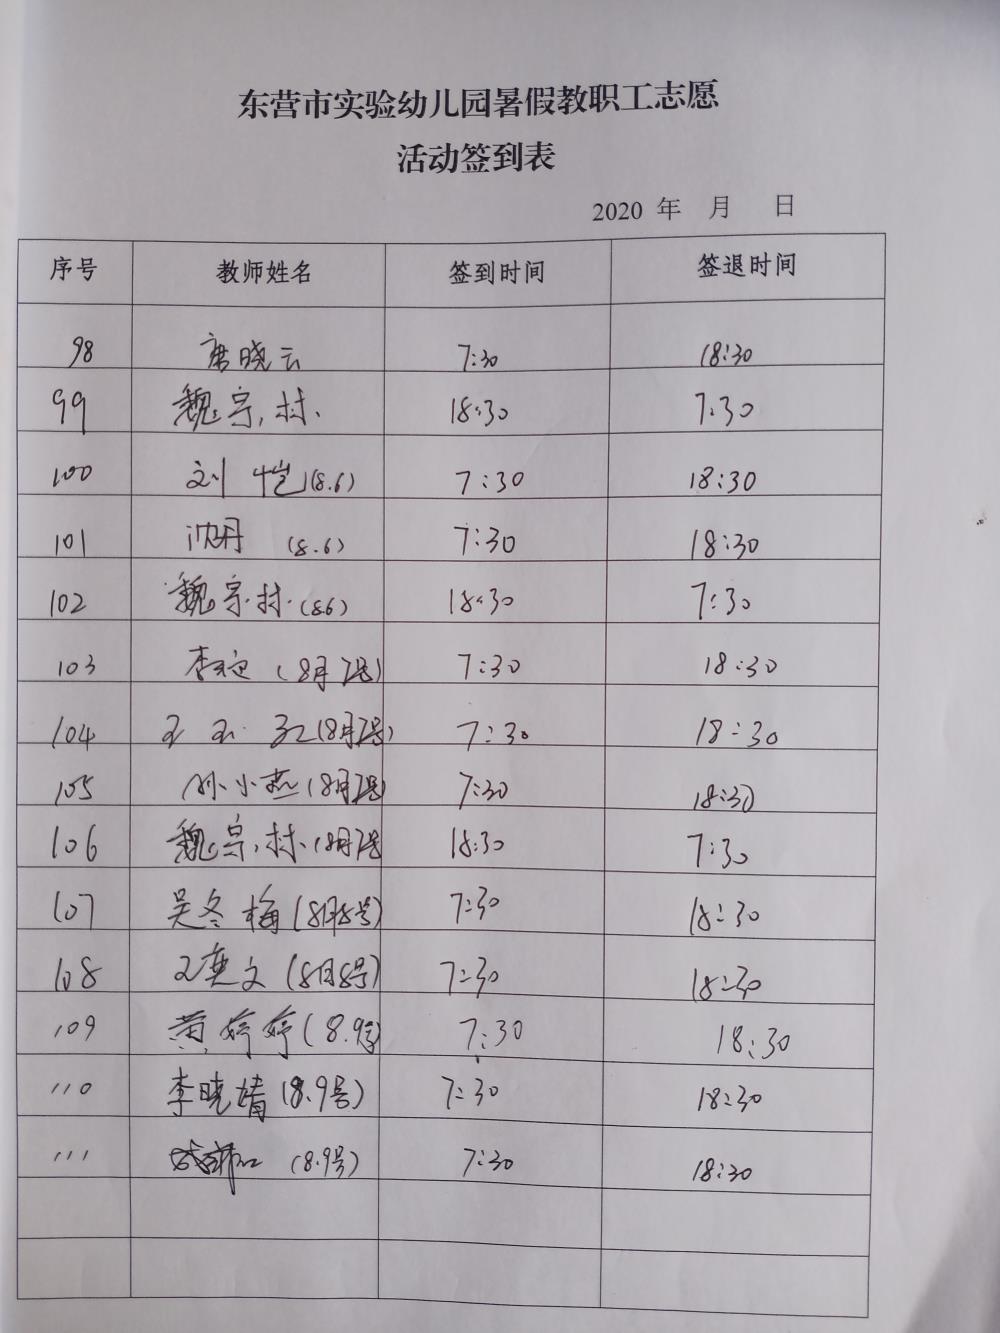 东营市实验幼儿园暑假教职工志愿
活动签到表
2020 年 月 日
序号 教师姓名 签到时间 签退时间
98 唐晓云 7:30 18:30
99 魏宗村 18:30 7:30
100 刘恺(8.6) 7:30 18:30
101 沈丹 (8.6) 7:30 18:30
102 魏宗村(8.6) 18:30 7:30
103 李 (8月7号) 7:30 18:30
104 王玉红(8月7号) 7:30 18:30
105 孙小燕(8月7号) 7:30 18:30
106 魏宗村(8月7号 18:30 7:30
107 吴冬梅(8月8号) 7:30 18:30
108 文(8月8号) 7:30 18:30
109 黄婷婷(8.9号) 7:30 18:30
110 李晓婧(8.9号) 7:30 18:30
111 (8.9号) 7:30 18:30